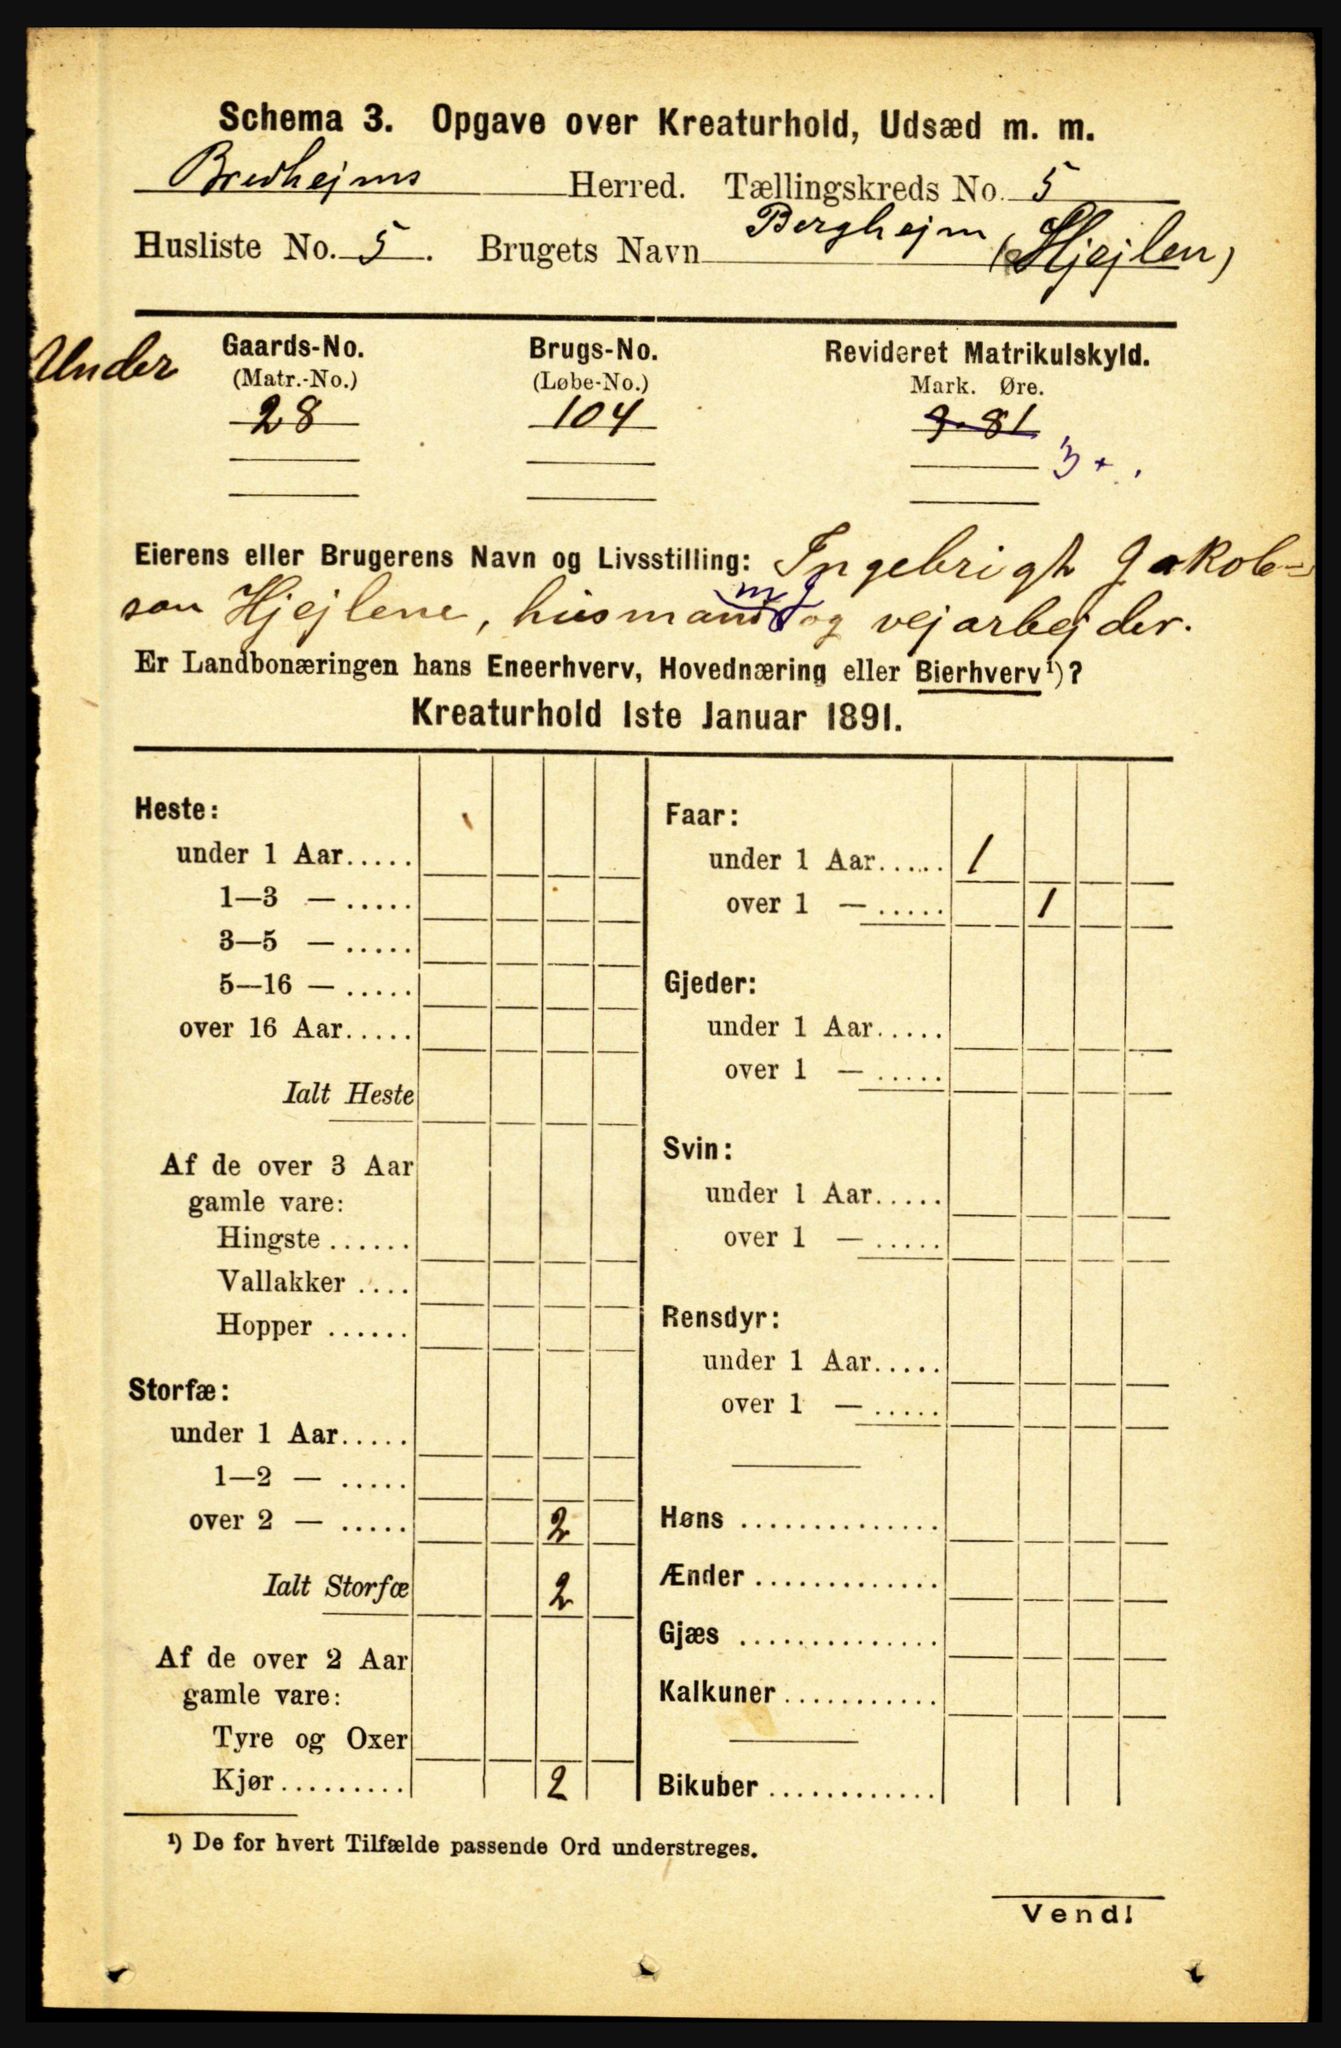 Schema 3. Opgave over Kreaturhold, Udsæd m. m.
Bredhejms Herred. Tællingskreds No. 5
Husliste No. 5. Brugets Navn Berghejm (Hjejlen)
Under
Gaards-No. Brugs-No. Revideret Matrikulskyld.
(Matr.-No.) (Løbe-No.) Mark. Øre.
28 104 9.81
3 +
Eierens eller Brugerens Navn og Livsstilling: Ingebrigt Jakob-
son Hjejlene, husmand mJ og vejarbejder.
Er Landbonæringen hans Eneerhverv, Hovednæring eller Bierhverv¹)?
Kreaturhold 1ste Januar 1891.
Heste:
under 1 Aar.....
1—3 — .....
3—5 — .....
5—16 — .....
over 16 Aar.....
Ialt Heste
Af de over 3 Aar
gamle vare:
Hingste ......
Vallakker ....
Hopper ......
Storfæ:
under 1 Aar.....
1—2 — .....
over 2 — ..... 2
Ialt Storfæ 2
Af de over 2 Aar
gamle vare:
Tyre og Oxer
Kjør......... 2
Faar:
under 1 Aar..... 1
over 1 — ..... 1
Gjeder:
under 1 Aar.....
over 1 — .....
Svin:
under 1 Aar.....
over 1 — .....
Rensdyr:
under 1 Aar.....
over 1 — .....
Høns ..............
Ænder .............
Gjæs ..............
Kalkuner ...........
Bikuber ............
¹) De for hvert Tilfælde passende Ord understreges.
Vend!